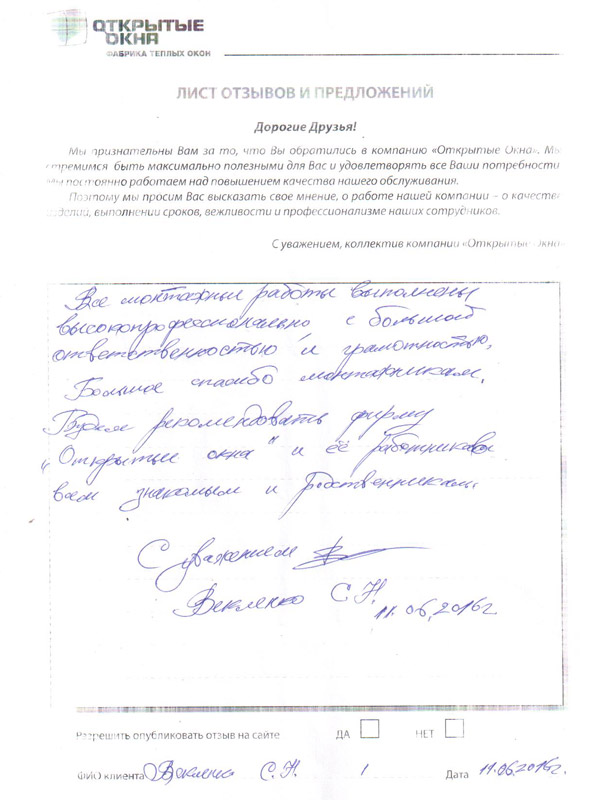 ОТКРЫТЫЕ
ОКНА
ФАБРИКА ТЕПЛЫХ ОКОН
ЛИСТ ОТЗЫВОВ И ПРЕДЛОЖЕНИЙ
Дорогие Друзья!
Мы признательны Вам за то, что Вы обратились в компанию «Открытые Окна». Мы
стремимся быть максимально полезными для Вас и удовлетворять все Ваши потребности
Мы постоянно работаем над повышением качества нашего обслуживания.
Поэтому мы просим Вас высказать свое мнение, о работе нашей компании – о качестве
изделий, выполнении сроков, вежливости и профессионализме наших сотрудников.
С уважением, коллектив компании «Открытые Окна»
Все монтажные работы выполнены
высокопрофессионально, с большой
ответственностью и грамотностью.
Большое спасибо монтажникам.
Будем рекомендовать фирму
„Открытые окна" и её работников
всем знакомым и родственникам.
С уважением
Векленко С.Н.
11.06.2016г.
Разрешить опубликовать отзыв на сайте ДА НЕТ
ФИО клиента Векленко С.Н. Дата 11.06.2016г.